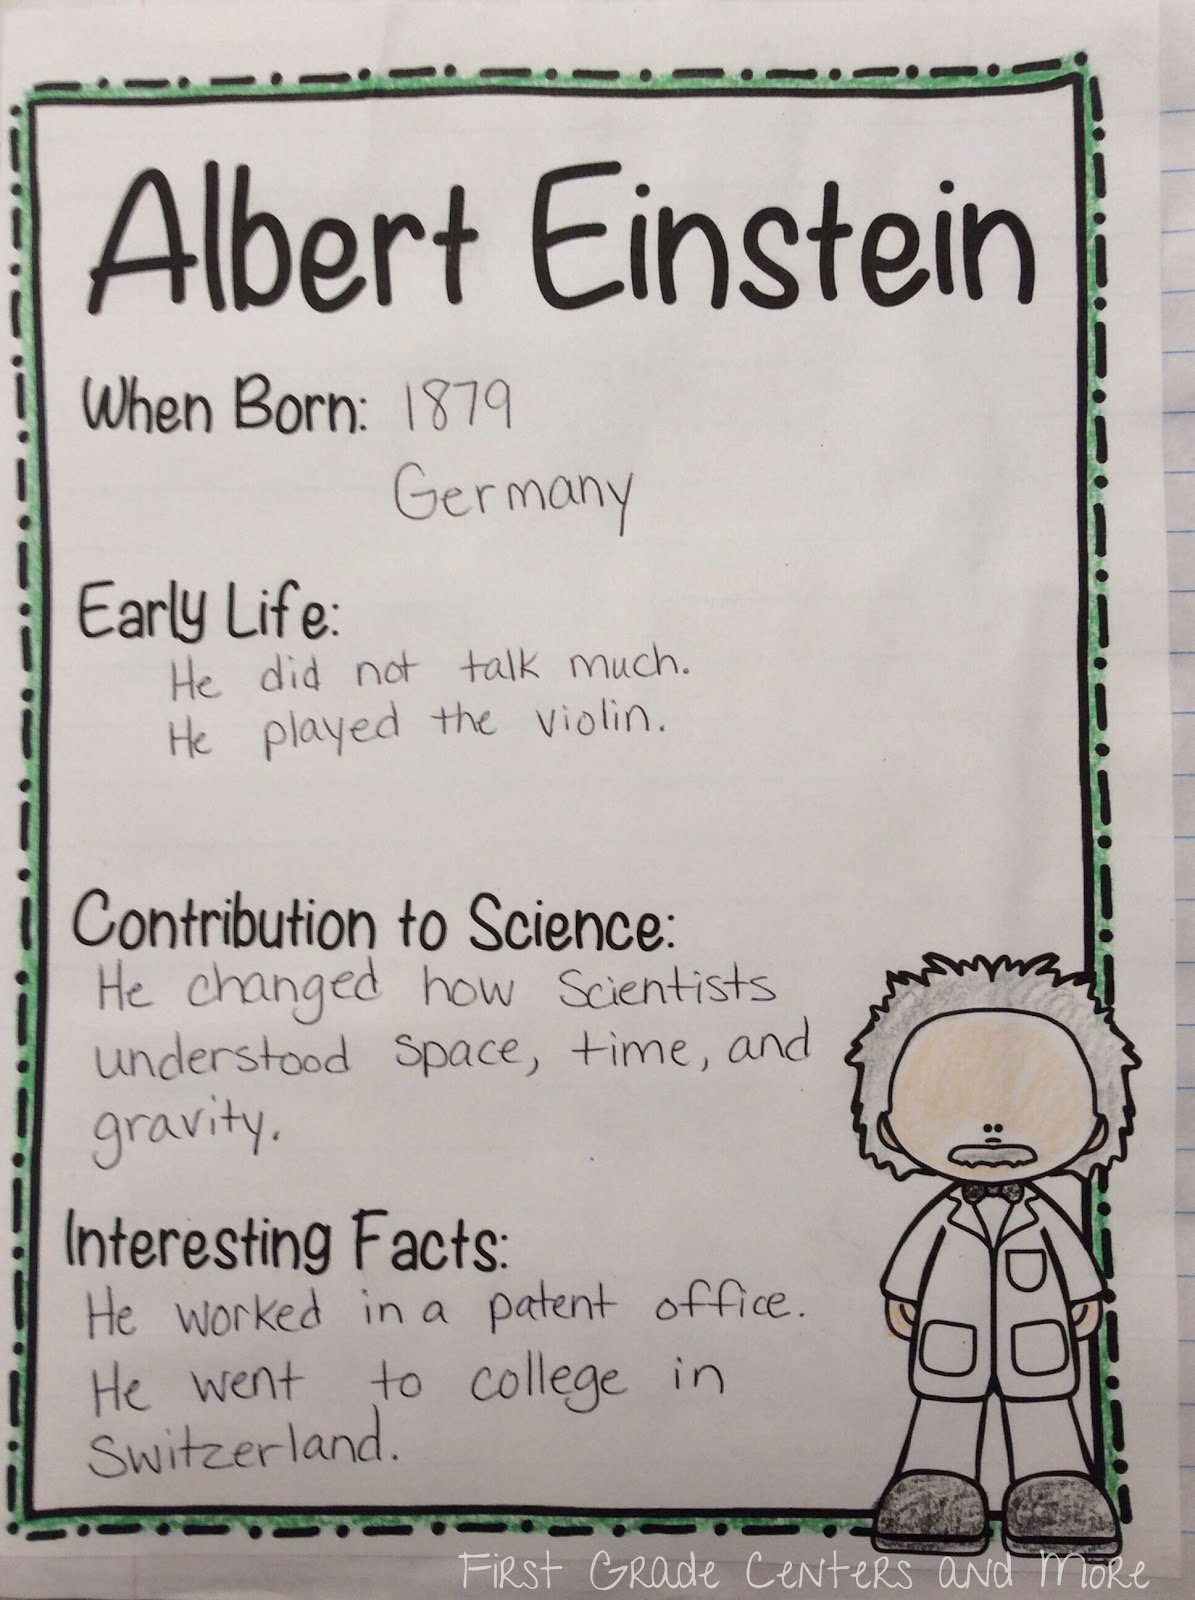 Albert Einstein
When Born: 1879
Germany
Early Life:
He did not talk much.
He played the violin.
Contribution to Science:
He changed how Scientists
understood space, time, and
gravity.
Interesting Facts:
He worked in a patent office.
He went to college in
Switzerland.
First Grade Centers and More